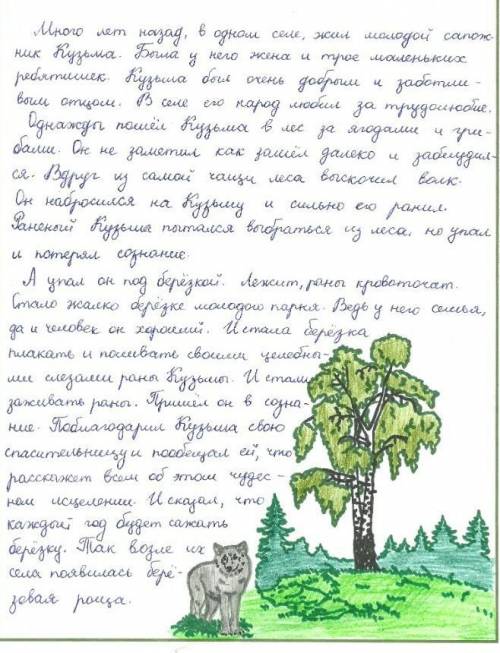 Много лет назад, в одном селе, жил молодой сапож-
ник Кузьма. Была у него жена и трое маленьких
ребятишек. Кузьма был очень добрым и заботли-
вым отцом. В селе его народ любил за трудолюбие.
Однажды пошёл Кузьма в лес за ягодами и гри-
бами. Он не заметил как зашёл далеко и заблудил-
ся. Вдруг из самой чащи леса выскочил волк.
Он набросился на Кузьму и сильно его ранил.
Раненый Кузьма пытался выбраться из леса, но упал
и потерял сознание.
А упал он под берёзкой. Лежит, раны кровоточат.
Стало жалко берёзке молодого парня. Ведь у него семья,
да и человек он хороший. И стала берёзка
плакать и поливать своими целебны-
ми слезами раны Кузьмы. И стали
заживать раны. Пришёл он в созна-
ние. Поблагодарил Кузьма свою
спасительницу и пообещал ей, что
расскажет всем об этом чудес-
ном исцелении. И сказал, что
каждый год будет сажать
берёзку. Так возле их
села появилась берё-
зовая роща.